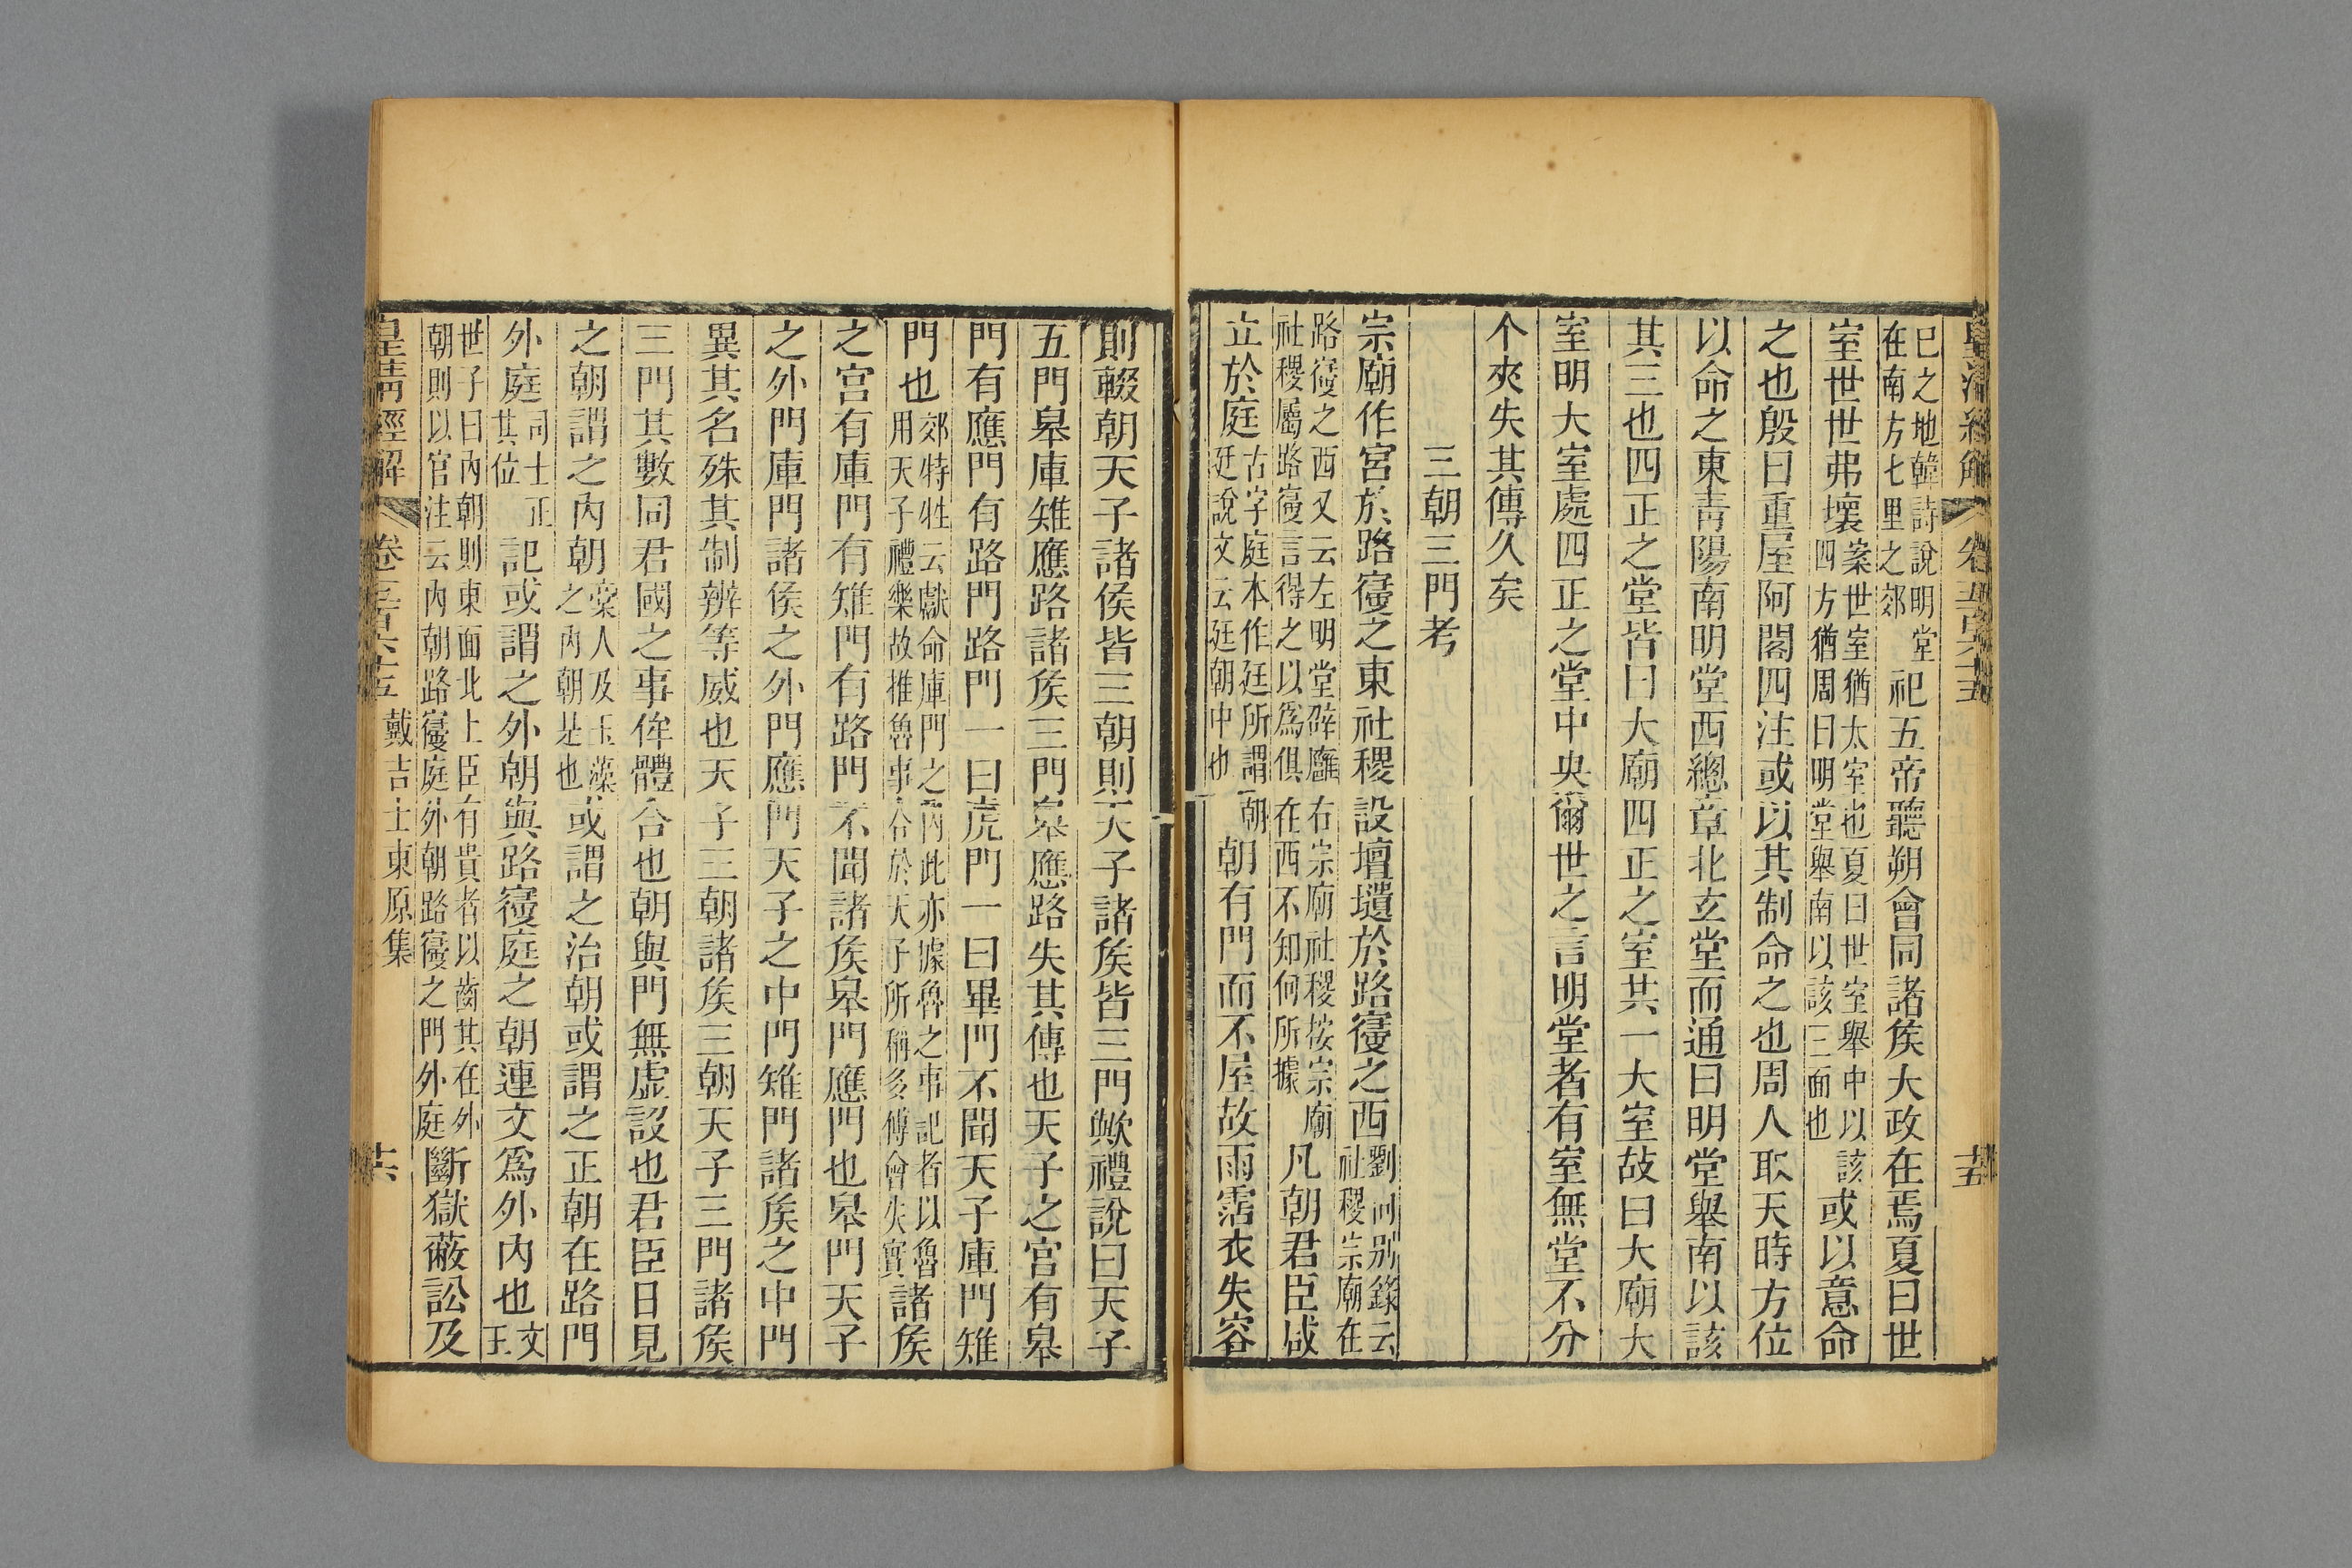 皇清經解 卷五百六十五 十五
巳之地韓詩說明堂在南方七里之郊祀五帝聽朔會同諸矦大政在焉夏曰世
室世世弗壞案世室猶太室也夏曰世室舉中以該四方猶周曰明堂舉南以該三面也或以意命
之也殷曰重屋阿閣四注或以其制命之也周人取天時方位
以命之東靑陽南明堂西總章北玄堂而通曰明堂舉南以該
其三也四正之堂皆曰大廟四正之室共一大室故曰大廟大
室明大室處四正之堂中央爾世之言明堂者有室無堂不分
个夾失其傳久矣
三朝三門考
宗廟作宮於路寢之東社稷設壇壝於路寢之西劉向別錄云社稷宗廟在
路寢之西又云左明堂辟廱右宗廟社稷按宗廟社稷屬路寢言得之以爲俱在西不知何所據凡朝君臣咸
立於庭古字庭本作廷所謂朝廷說文云廷朝中也朝有門而不屋故雨霑衣失容
則輟朝天子諸矦皆三朝則天子諸矦皆三門歟禮說曰天子
五門皋庫雉應路諸矦三門皋應路失其傳也天子之宮有皋
門有應門有路門路門一曰虎門一曰畢門不聞天子庫門雉
門也郊特牲云獻命庫門之內此亦據魯之事記者以魯用天子禮樂故推魯事合於天子所稱多傅會失實諸矦
之宮有庫門有雉門有路門不聞諸矦皋門應門也皋門天子
之外門庫門諸矦之外門應門天子之中門雉門諸矦之中門
異其名殊其制辨等威也天子三朝諸矦三朝天子三門諸矦
三門其數同君國之事侔體合也朝與門無虛設也君臣日見
之朝謂之內朝稾人及玉藻之內朝是也或謂之治朝或謂之正朝在路門
外庭司士正其位記或謂之外朝與路寢庭之朝連文爲外內也文王
世子曰內朝則東面北上臣有貴者以齒其在外朝則以官注云內朝路寢庭外朝路寢之門外庭斷獄蔽訟及
皇清經解 卷五百六十五 戴吉士東原集 十六